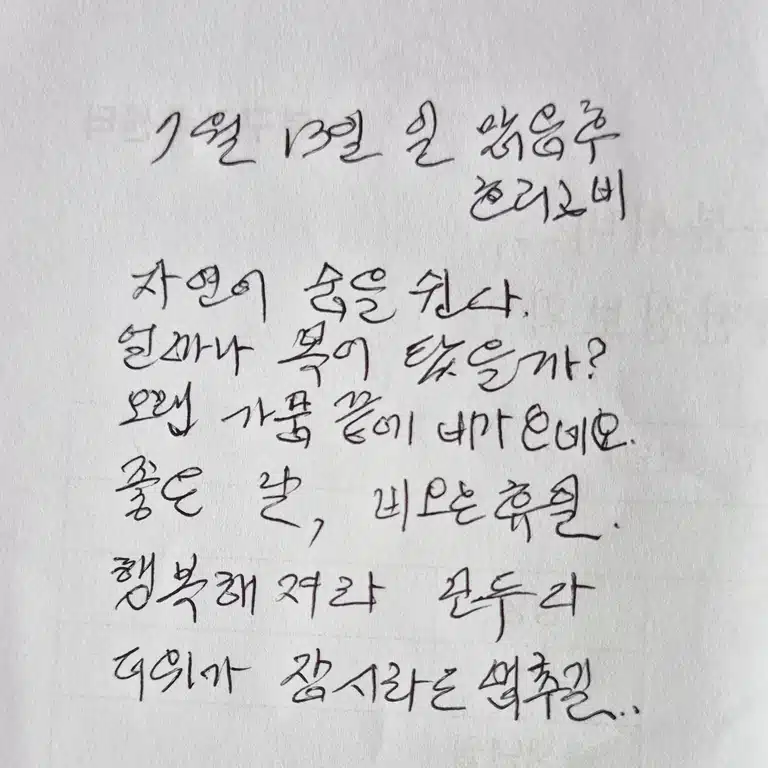 7월 13일 일 맑음후
흐리고비
자연이 숨을 쉰다.
얼마나 목이 탔을까?
오랜 가뭄 끝에 비가 오네요.
좋은 날, 비오는 휴일.
행복해 져라 모두라
더위가 잠시라도 멈추길..